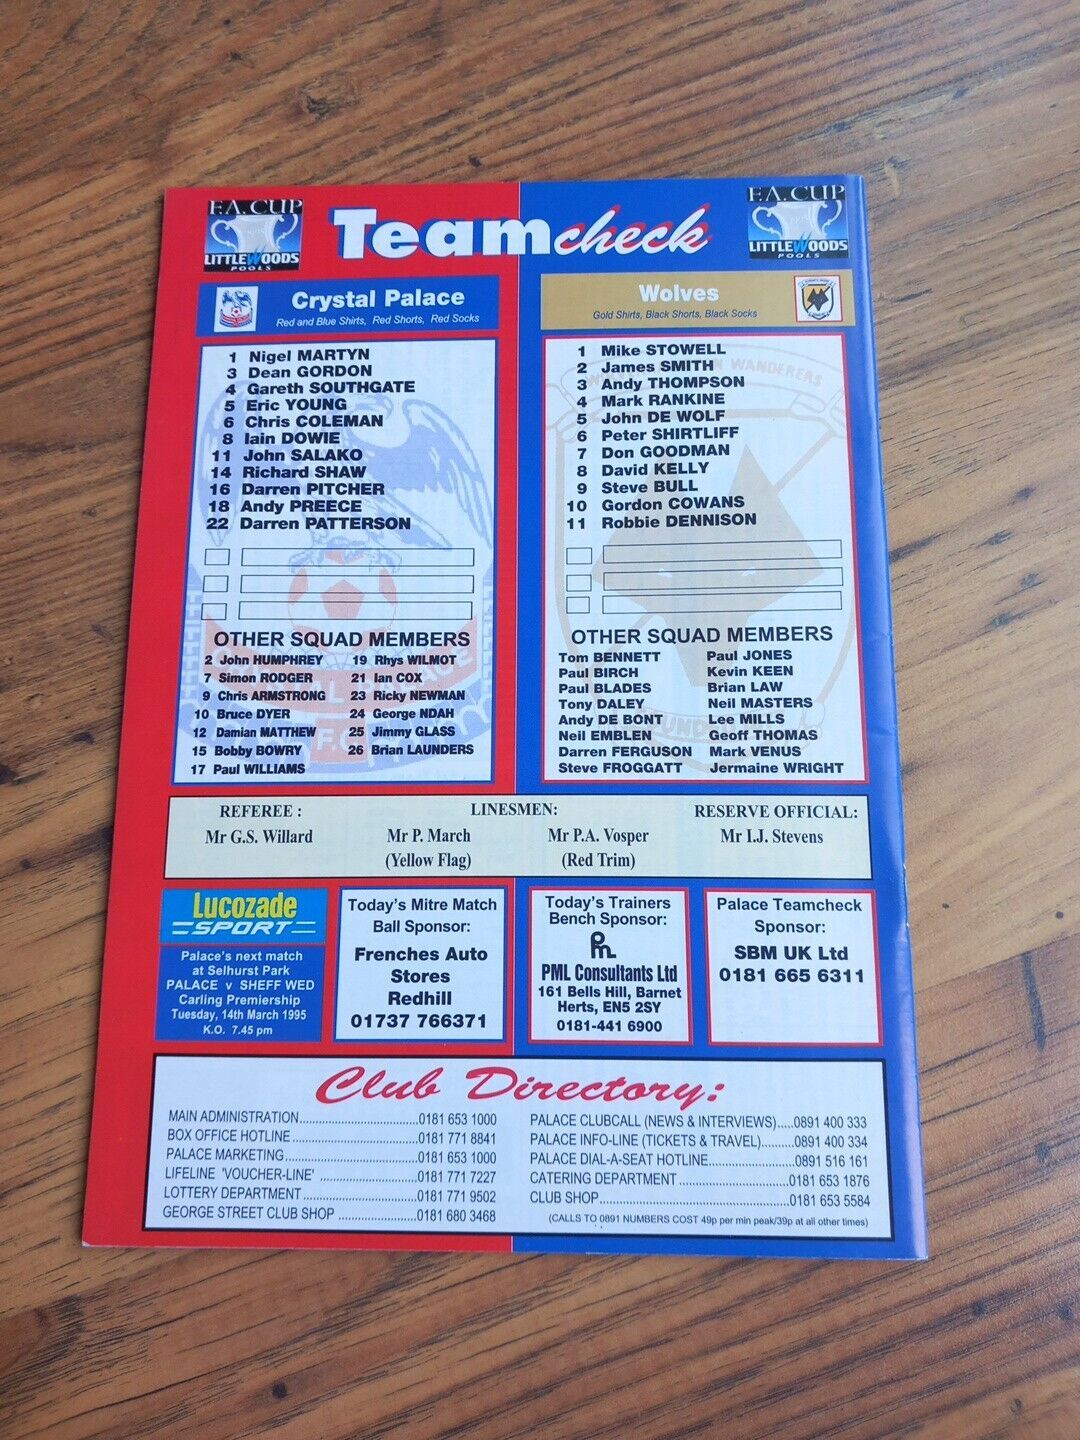 F.A. CUP
LITTLEWOODS
POOLS
Teamcheck
F.A. CUP
LITTLEWOODS
POOLS
Crystal Palace
Red and Blue Shirts, Red Shorts, Red Socks
1 Nigel MARTYN
3 Dean GORDON
4 Gareth SOUTHGATE
5 Eric YOUNG
6 Chris COLEMAN
8 Iain DOWIE
11 John SALAKO
14 Richard SHAW
16 Darren PITCHER
18 Andy PREECE
22 Darren PATTERSON
OTHER SQUAD MEMBERS
2 John HUMPHREY 19 Rhys WILMOT
7 Simon RODGER 21 Ian COX
9 Chris ARMSTRONG 23 Ricky NEWMAN
10 Bruce DYER 24 George NDAH
12 Damian MATTHEW 25 Jimmy GLASS
15 Bobby BOWRY 26 Brian LAUNDERS
17 Paul WILLIAMS
Wolves
Gold Shirts, Black Shorts, Black Socks
1 Mike STOWELL
2 James SMITH
3 Andy THOMPSON
4 Mark RANKINE
5 John DE WOLF
6 Peter SHIRTLIFF
7 Don GOODMAN
8 David KELLY
9 Steve BULL
10 Gordon COWANS
11 Robbie DENNISON
OTHER SQUAD MEMBERS
Tom BENNETT Paul JONES
Paul BIRCH Kevin KEEN
Paul BLADES Brian LAW
Tony DALEY Neil MASTERS
Andy DE BONT Lee MILLS
Neil EMBLEN Geoff THOMAS
Darren FERGUSON Mark VENUS
Steve FROGGATT Jermaine WRIGHT
REFEREE : LINESMEN: RESERVE OFFICIAL:
Mr G.S. Willard Mr P. March Mr P.A. Vosper Mr I.J. Stevens
(Yellow Flag) (Red Trim)
Lucozade
SPORT
Palace's next match
at Selhurst Park
PALACE v SHEFF WED
Carling Premiership
Tuesday, 14th March 1995
K.O. 7.45 pm
Today's Mitre Match
Ball Sponsor:
Frenches Auto
Stores
Redhill
01737 766371
Today's Trainers
Bench Sponsor:
PML Consultants Ltd
161 Bells Hill, Barnet
Herts, EN5 2SY
0181-441 6900
Palace Teamcheck
Sponsor:
SBM UK Ltd
0181 665 6311
Club Directory:
MAIN ADMINISTRATION..............................0181 653 1000
BOX OFFICE HOTLINE................................0181 771 8841
PALACE MARKETING..................................0181 653 1000
LIFELINE 'VOUCHER-LINE' .........................0181 771 7227
LOTTERY DEPARTMENT.............................0181 771 9502
GEORGE STREET CLUB SHOP ....................0181 680 3468
PALACE CLUBCALL (NEWS & INTERVIEWS).....0891 400 333
PALACE INFO-LINE (TICKETS & TRAVEL).........0891 400 334
PALACE DIAL-A-SEAT HOTLINE......................0891 516 161
CATERING DEPARTMENT............................0181 653 1876
CLUB SHOP................................................0181 653 5584
(CALLS TO 0891 NUMBERS COST 49p per min peak/39p at all other times)